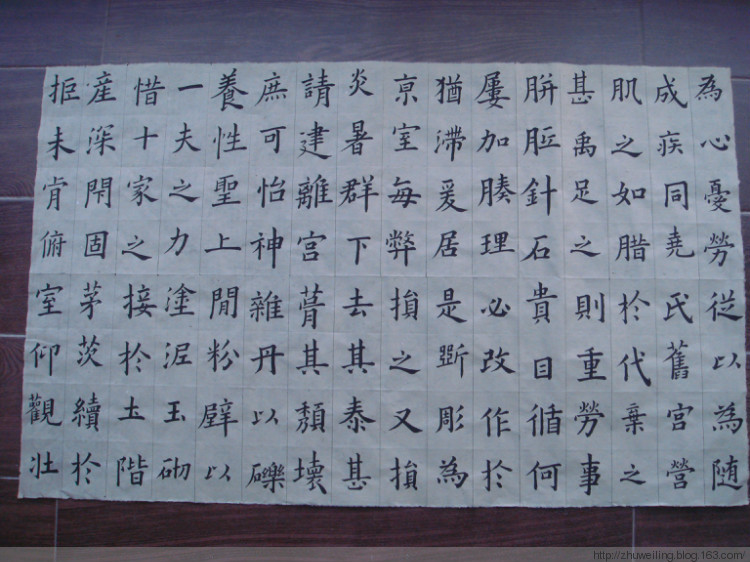 為心憂勞從以為随
成疾同堯氏舊宮營
肌之如腊於代棄之
甚禹足之則重勞事
胼胝針石貴目循何
屢加腠理必改作於
猶滯爰居是斲彫為
京室每弊損之又損
炎暑群下去其泰甚
請建離宮葺其頹壞
庶可怡神雜丹以礫
養性聖上閒粉壁以
一夫之力塗泥玉砌
惜十家之接於土階
産深閇固茅茨續於
拒未肯俯室仰觀壯
http://zhuweiling.blog.163.com/